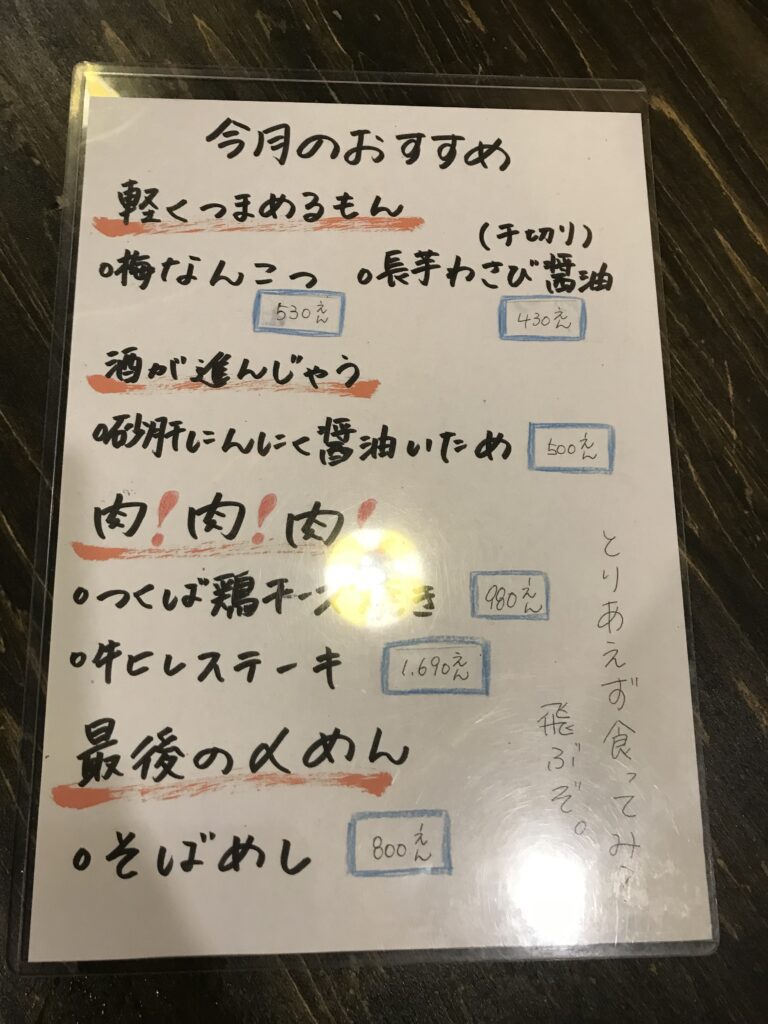 今月のおすすめ
軽くつまめるもん
(千切り)
○梅なんこつ ○長芋わさび醤油
530えん 430えん
酒が進んじゃう
○砂肝にんにく醤油いため 500えん
肉!肉!肉!
○つくば鶏チー き 980えん
○牛ヒレステーキ 1.690えん
最後の〆めん
○そばめし 800えん
とりあえず食ってみ
飛ぶぞ。